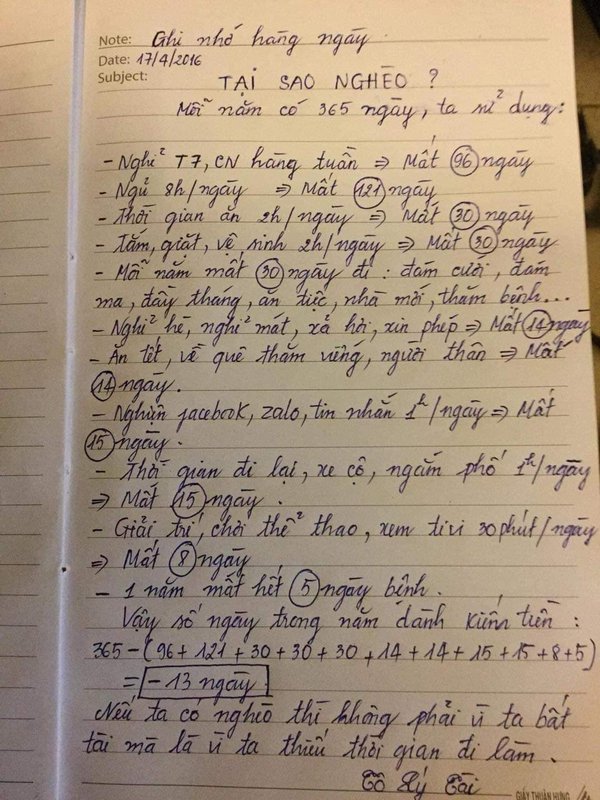 Note: Ghi nhớ hàng ngày
Date: 17/4/2016
Subject:
TẠI SAO NGHÈO ?
Mỗi năm có 365 ngày, ta sử dụng:
- Nghỉ T7, CN hàng tuần => Mất 96 ngày
- Ngủ 8h/ngày => Mất 121 ngày
- Thời gian ăn 2h/ngày => Mất 30 ngày
- Tắm, giặt, vệ sinh 2h/ngày => Mất 30 ngày
- Mỗi năm mất 30 ngày đi : đám cưới, đám
ma, đầy tháng, ăn tiệc, nhà mới, thăm bệnh...
- Nghỉ hè, nghỉ mát, xả hơi, xin phép => Mất 14 ngày
- Ăn tết, về quê thăm viếng, người thân => Mất
14 ngày.
- Nghiện facebook, zalo, tin nhắn 1h/ngày => Mất
15 ngày.
- Thời gian đi lại, xe cộ, ngắm phố 1h/ngày
=> Mất 15 ngày.
- Giải trí, chơi thể thao, xem tivi 30 phút/ngày
=> Mất 8 ngày
- 1 năm mất hết 5 ngày bệnh.
Vậy số ngày trong năm dành kiếm tiền :
365 - (96 + 121 + 30 + 30 + 30 + 14 + 14 + 15 + 15 + 8 + 5)
= - 13 ngày
Nếu ta có nghèo thì không phải vì ta bất
tài mà là vì ta thiếu thời gian đi làm.
Tô Lý Tài
GIẤY THUẬN HƯNG